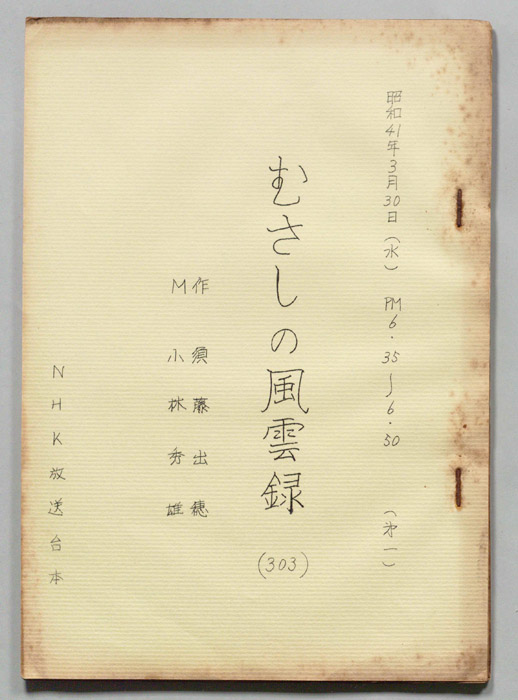 昭和41年3月30日(水) PM6・35〜6・50 (才一)
むさしの風雲録(303)
作 須藤出穂
M 小林秀雄
NHK放送台本